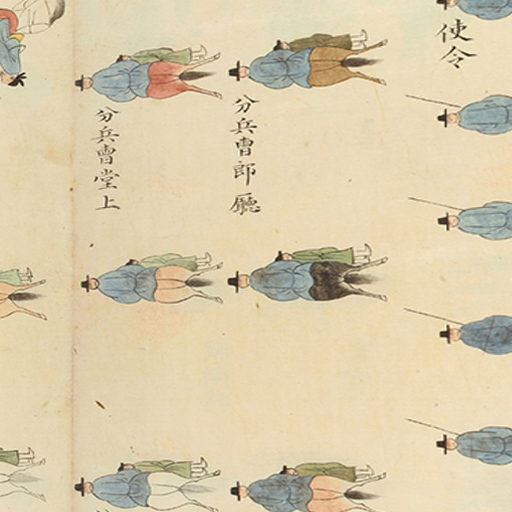 使令
分兵曹郎廳
分兵曹堂上